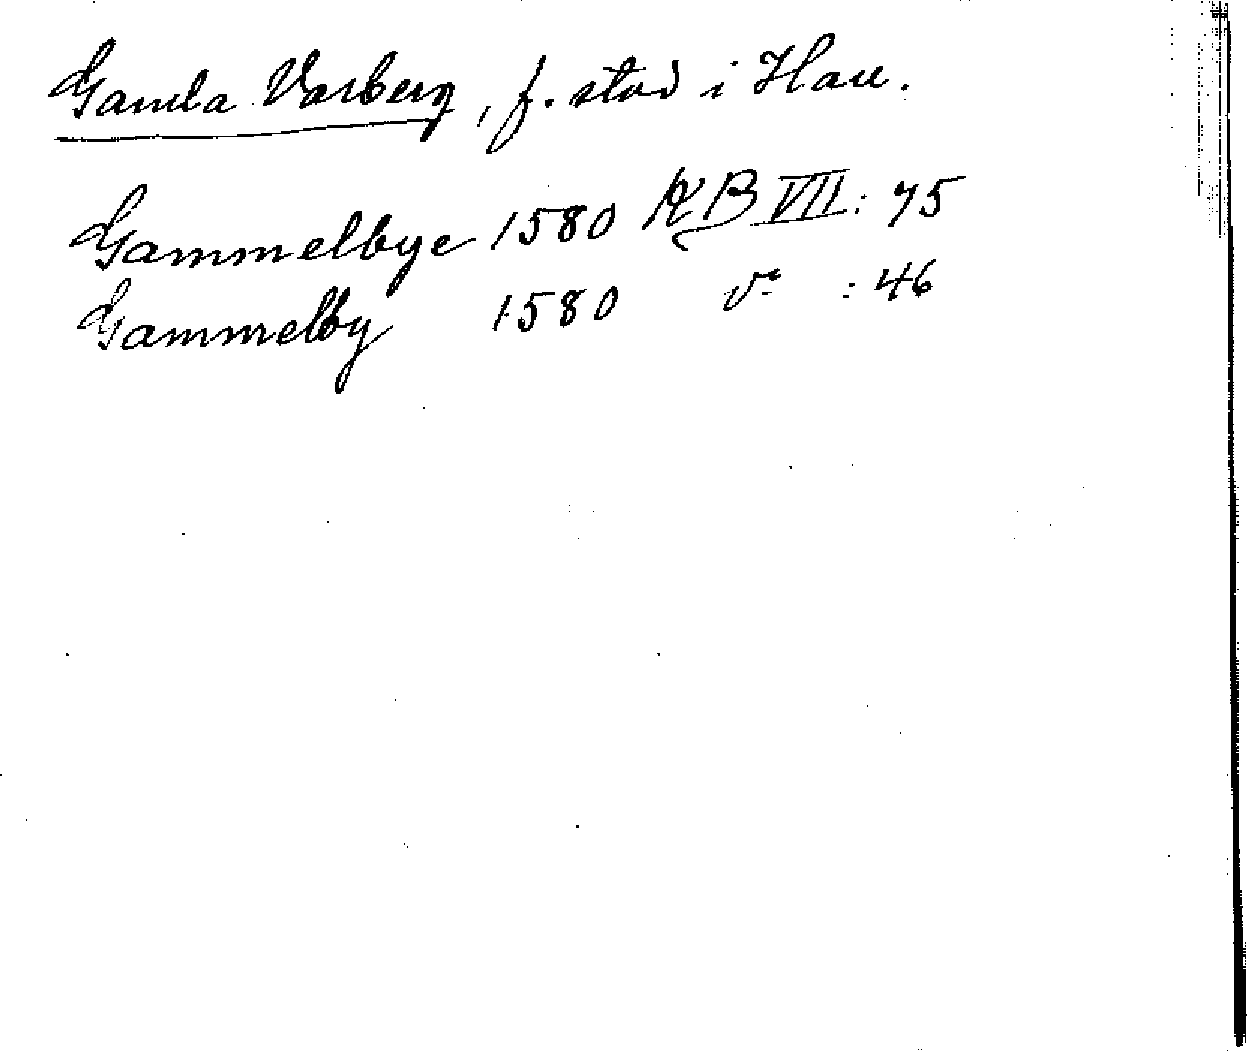 Gamla Varberg, f. stad i Hall.
Gammelbye 1580 KB VII: 75
Gammelby 1580 : 46